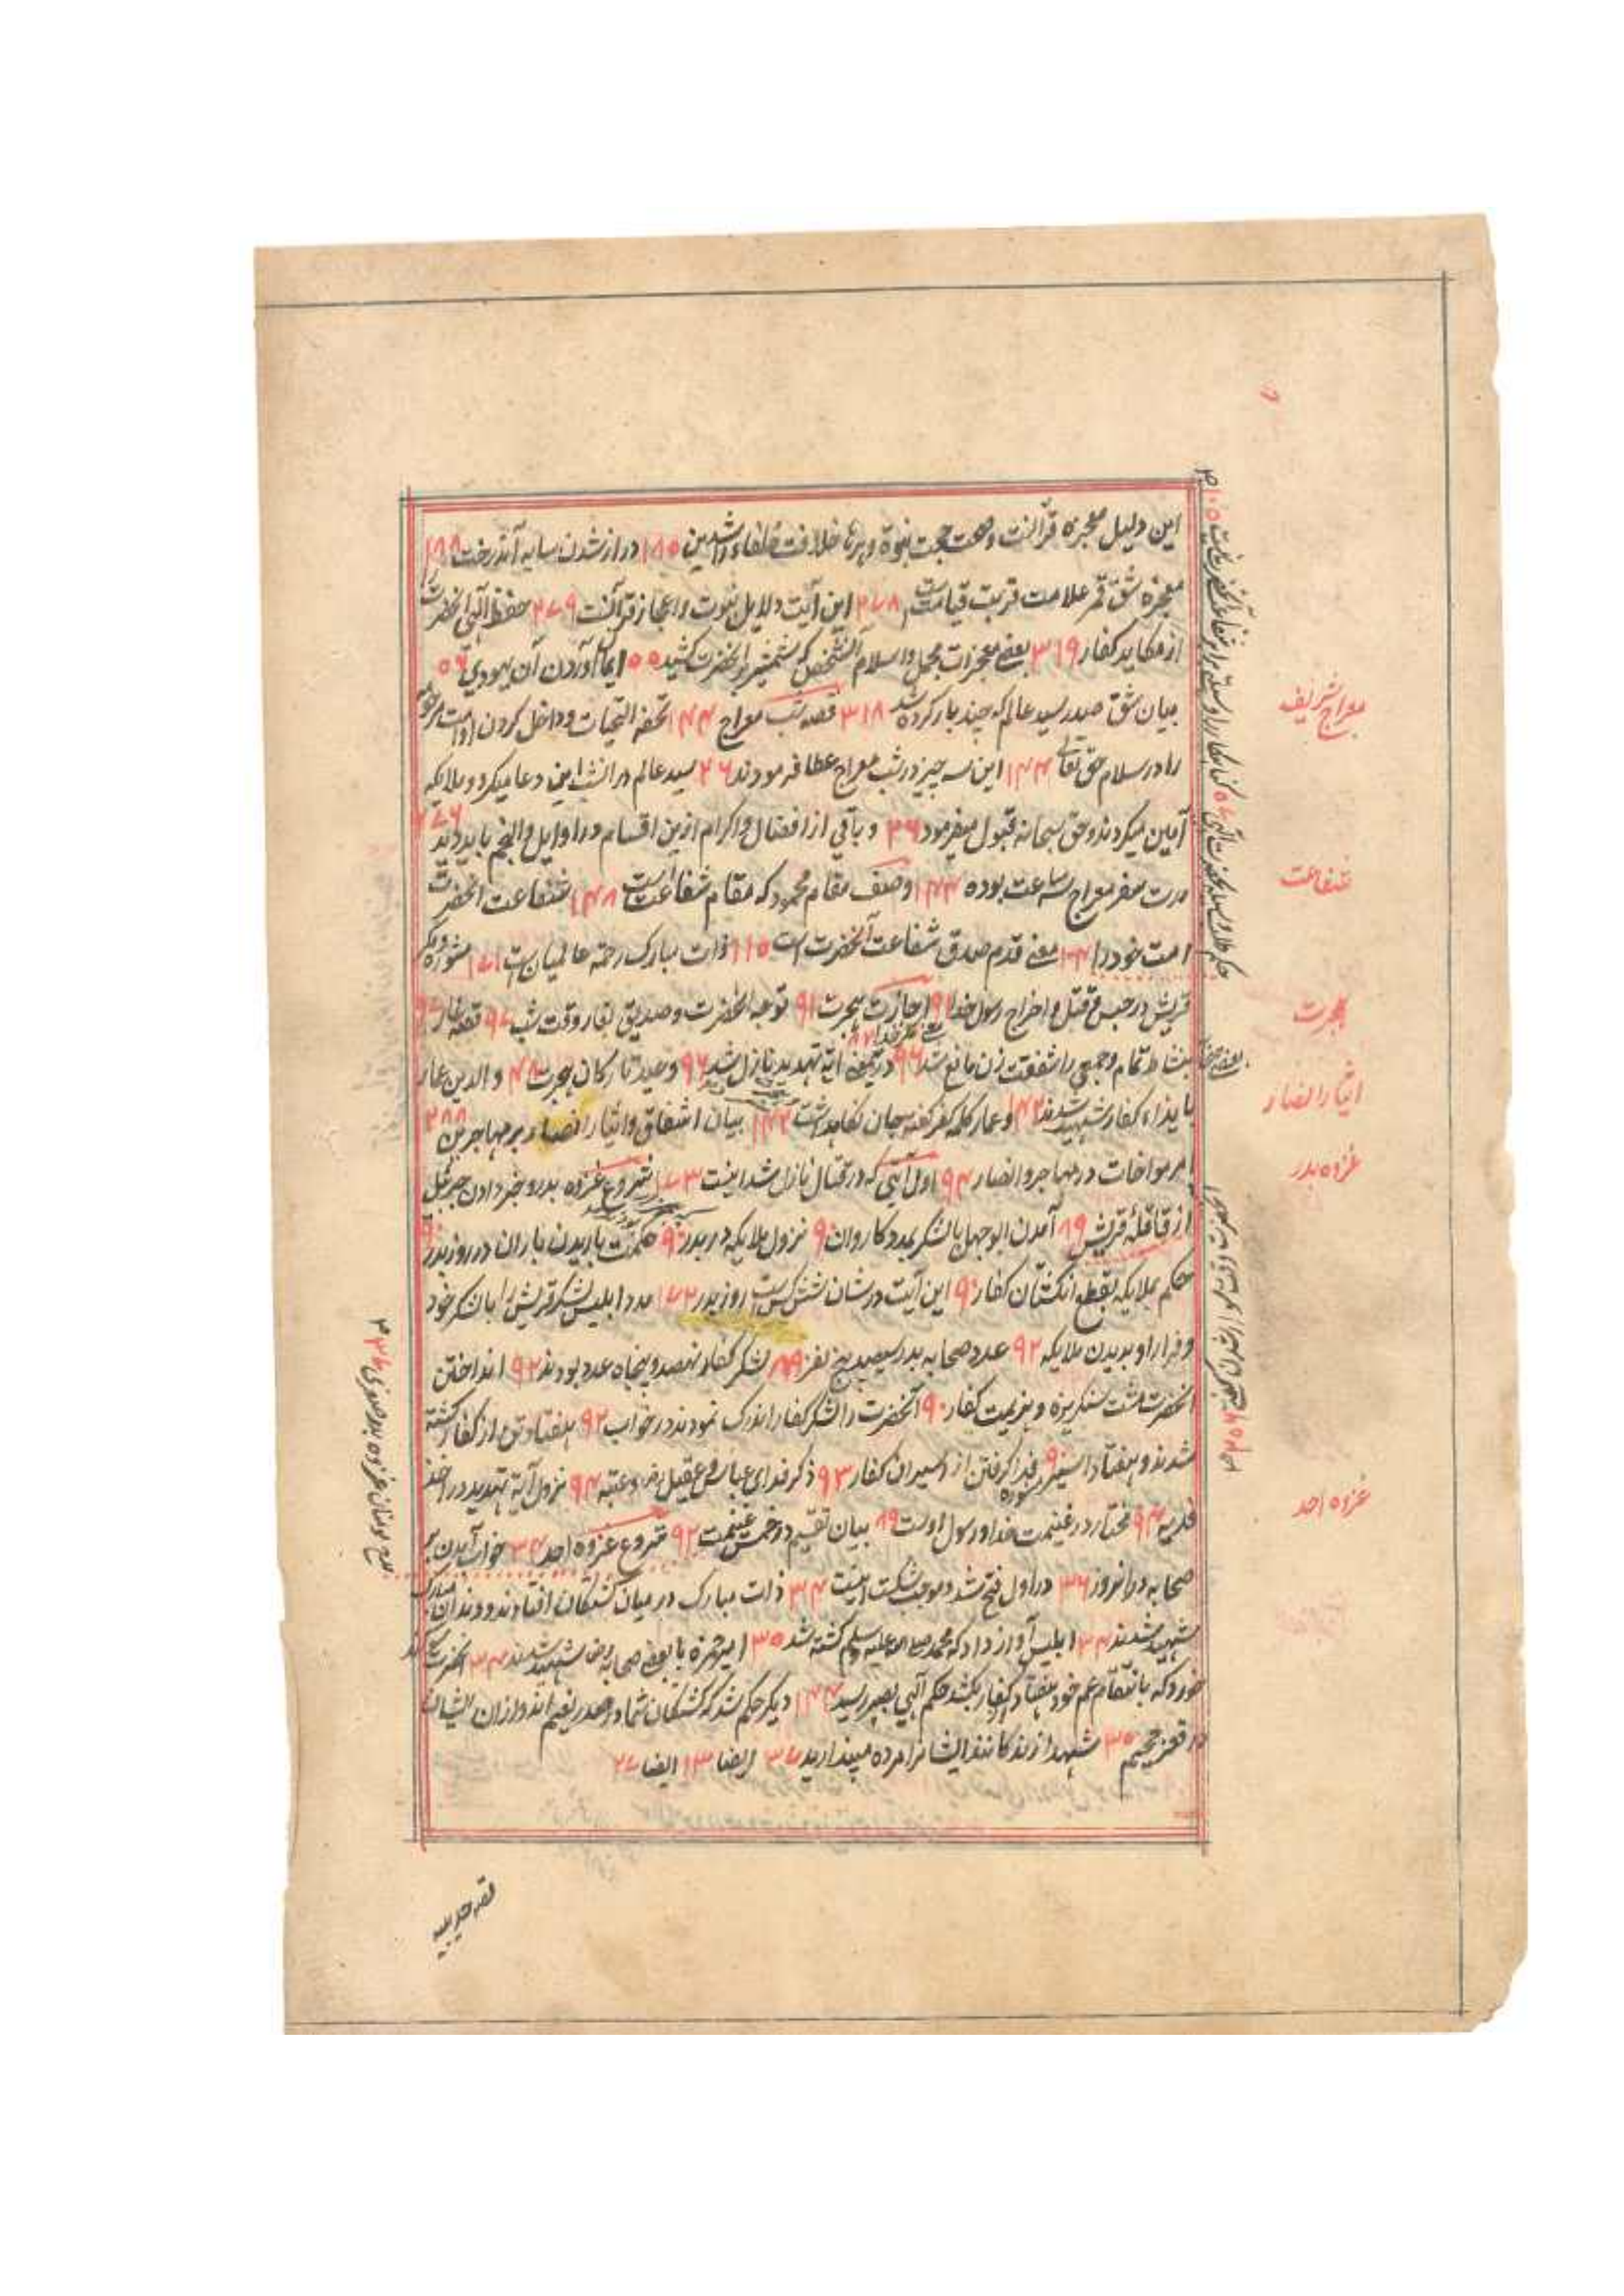 این دلیل معجزه قرآنست و صحت حجت نبوة و برهان خلافت خلفاء راشدین ۱۸۵ دراز شدن سایه آندرخت ۱۸۸
معجزه شق قمر علامت قربت قیامت است ۲۷۸ این آیت دلایل نبوت و اعجاز قرآنست ۲۷۹ حفظ الهی آنحضرت را
از مکاید کفار ۳۱۹ بعضی معجزات مجمل و اسلام آنشخص که شمشیر بر آنحضرت کشید ۵۵ ایمان آوردن آن یهودی ۵۶
بیان شق صدر سید عالم که چند بار کرده شد ۳۱۸ قصه شب معراج ۱۴۴ تحفه التحیات و داخل کردن او امت مرحوم
را در سلام حق تعالی ۱۴۴ این سه چیز در شب معراج عطا فرمودند ۲۶ سید عالم در انشب این دعا میکرد و ملایکه
آمین میکردند و حق سبحانه قبول میفرمود ۲۶ و باقی از افضال و اکرام ازین اقسام در اوایل والنجم باید دید ۲۷۶
مدت سفر معراج سه ساعت بوده ۱۴۴ وصف مقام محمود که مقام شفاعت است ۱۴۸ شفاعت آنحضرت
امت خود را معنی قدم صدق شفاعت آنحضرت است ۱۱۵ ذات مبارک رحمة عالمیان است ۱۷۱ مشوره مکر
قریش در حبس و قتل و اخراج رسول خدا ۹۱ اجازت هجرت ۹۱ توجه آنحضرت و صدیق بغار وقت شب ۹۷ قصه غار ۹۷
بنشاط تمام و جمعی را شفقت زن مانع شد ۹۶ آیة تهدید نازل شد ۹۶ وعید تارکان هجرت ۴۸ والدین عمار
بایذاء کفار شهید شدند ۱۴۲ و عمار کلمه کفر گفته جان نگاهداشت ۱۴۲ بیان اشفاق و ایثار انصار بر مهاجرین ۲۸۸
امر مواخات در مهاجر و انصار ۹۴ اول آیتی که در قتال نازل شد اینست ۱۷۳ شروع غزوه بدر و خبر دادن جبرئیل
از قافلهٔ قریش ۸۹ آمدن ابوجهل بالشکر بمدد کاروان ۹۰ نزول ملایکه در بدر ۹۰ حکمت باریدن باران در روز بدر ۹۰
حکم بملایکه بقطع انگشتان کفار ۹۰ این آیت در شان شش کس است روز بدر ۱۷۲ مدد ابلیس لشکر قریش را بالشکر خود
و فرار او بدیدن ملایکه ۹۲ عدد صحابه بدر سیصد پنج نفر ۸۹ لشکر کفار نهصد و پنجاه عدد بودند ۹۲ انداختن
آنحضرت مشت سنگریزه و هزیمت کفار ۹۰ آنحضرت را لشکر کفار اندک نمودند در خواب ۹۲ هفتاد تن از کفار کشته
شدند و هفتاد اسیر ۹۰ فدا گرفتن از اسیران کفار ۹۳ ذکر فدای عباس و عقیل و عتبه ۹۴ نزول آیة تهدید در اخذ
فدیه ۹۴ مختار در غنیمت خدا و رسول اوست ۸۹ بیان تقسیم و خمس غنیمت ۹۲ شروع غزوه احد ۳۴ خواب آمدن بر
صحابه در انروز ۳۶ در اول فتح شد و موجب شکست اینست ۳۴ ذات مبارک در میان کشتگان افتادند و دندان مبارک
شهید شدند ۳۴ ابلیس آواز داد که محمد صلی الله علیه وسلم کشته شد ۳۵ امیر حمزه با بعضی صحابه رض شهید شدند ۳۴ آنحضرت سوگند
خورد که بانتقام عم خود هفتاد کفار بکشد حکم الهی بصبر رسید ۱۴۴ دیگر حکم شد که کشتگان شما در صدر نعیم اند و از ان ایشان
در قعر جحیم ۳۵ شهدا از زندگانند ایشانرا مرده مپندارید ۳۷ ایضا ۱۳ ایضا ۲۷
معراج شریف
شفاعت
هجرت
ایثار انصار
غزوه بدر
غزوه احد
مدح مومنان غزوه بدر صغری ۳۷
قصه حدیبیه